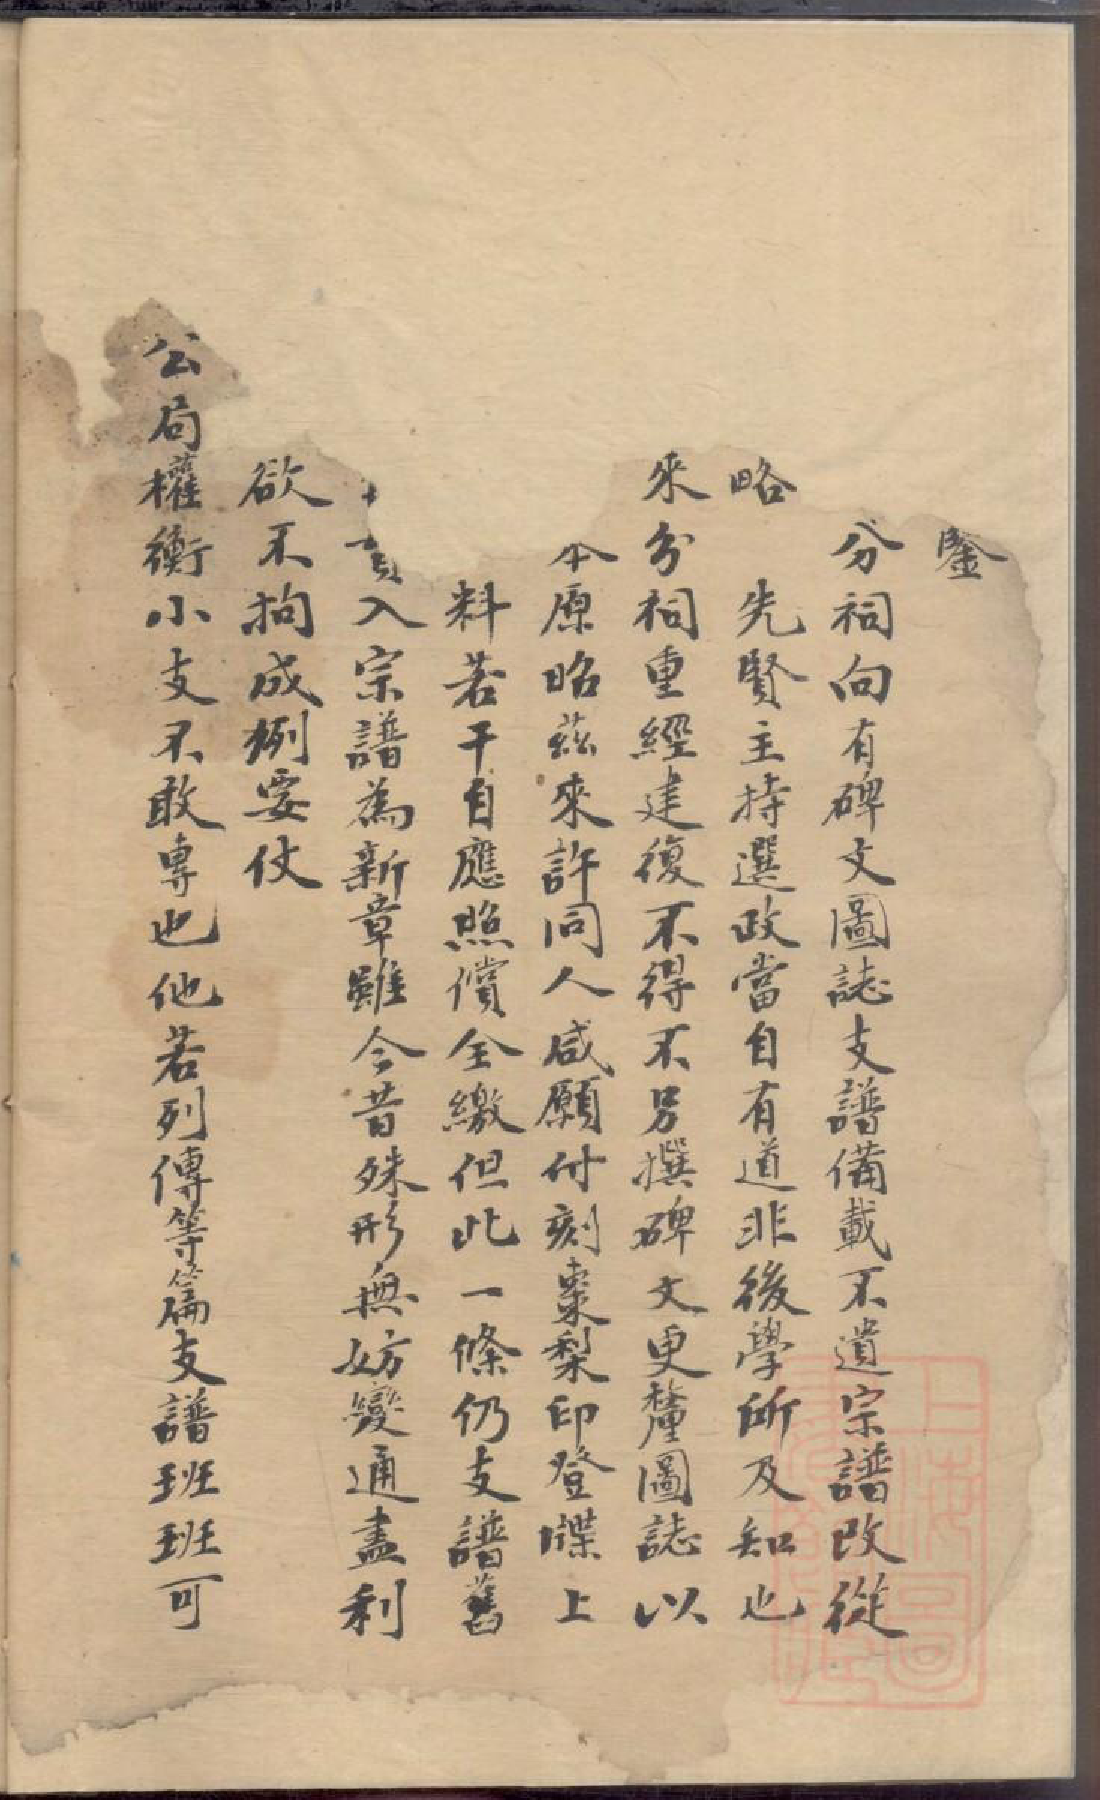 鑒
分祠向有碑文圖誌支譜備載不遺宗譜改從
略
先賢主持選政當自有道非後學所及知也
來分祠重經建復不得不另撰碑文更釐圖誌以
本原昭茲來許同人咸願付刻棗梨印登牒上
料若干自應照償全繳但此一條仍支譜舊
入宗譜為新章雖今昔殊形無妨變通盡利
欲不拘成例要仗
公局權衡小支不敢專也他若列傳等篇支譜班班可
上海圖